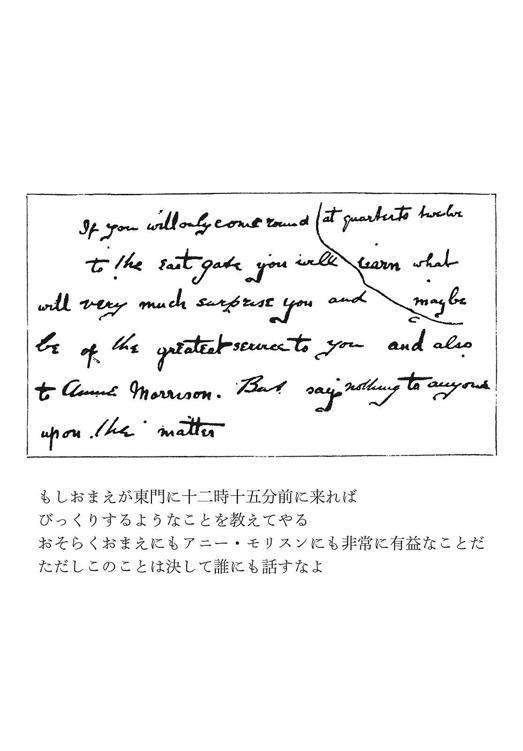 If you will only come round at quarter to twelve
to the east gate you will learn what
will very much surprise you and maybe
be of the greatest service to you and also
to Annie Morrison. But say nothing to anyone
upon the matter
もしおまえが東門に十二時十五分前に来れば
びっくりするようなことを教えてやる
おそらくおまえにもアニー・モリスンにも非常に有益なことだ
ただしこのことは決して誰にも話すなよ